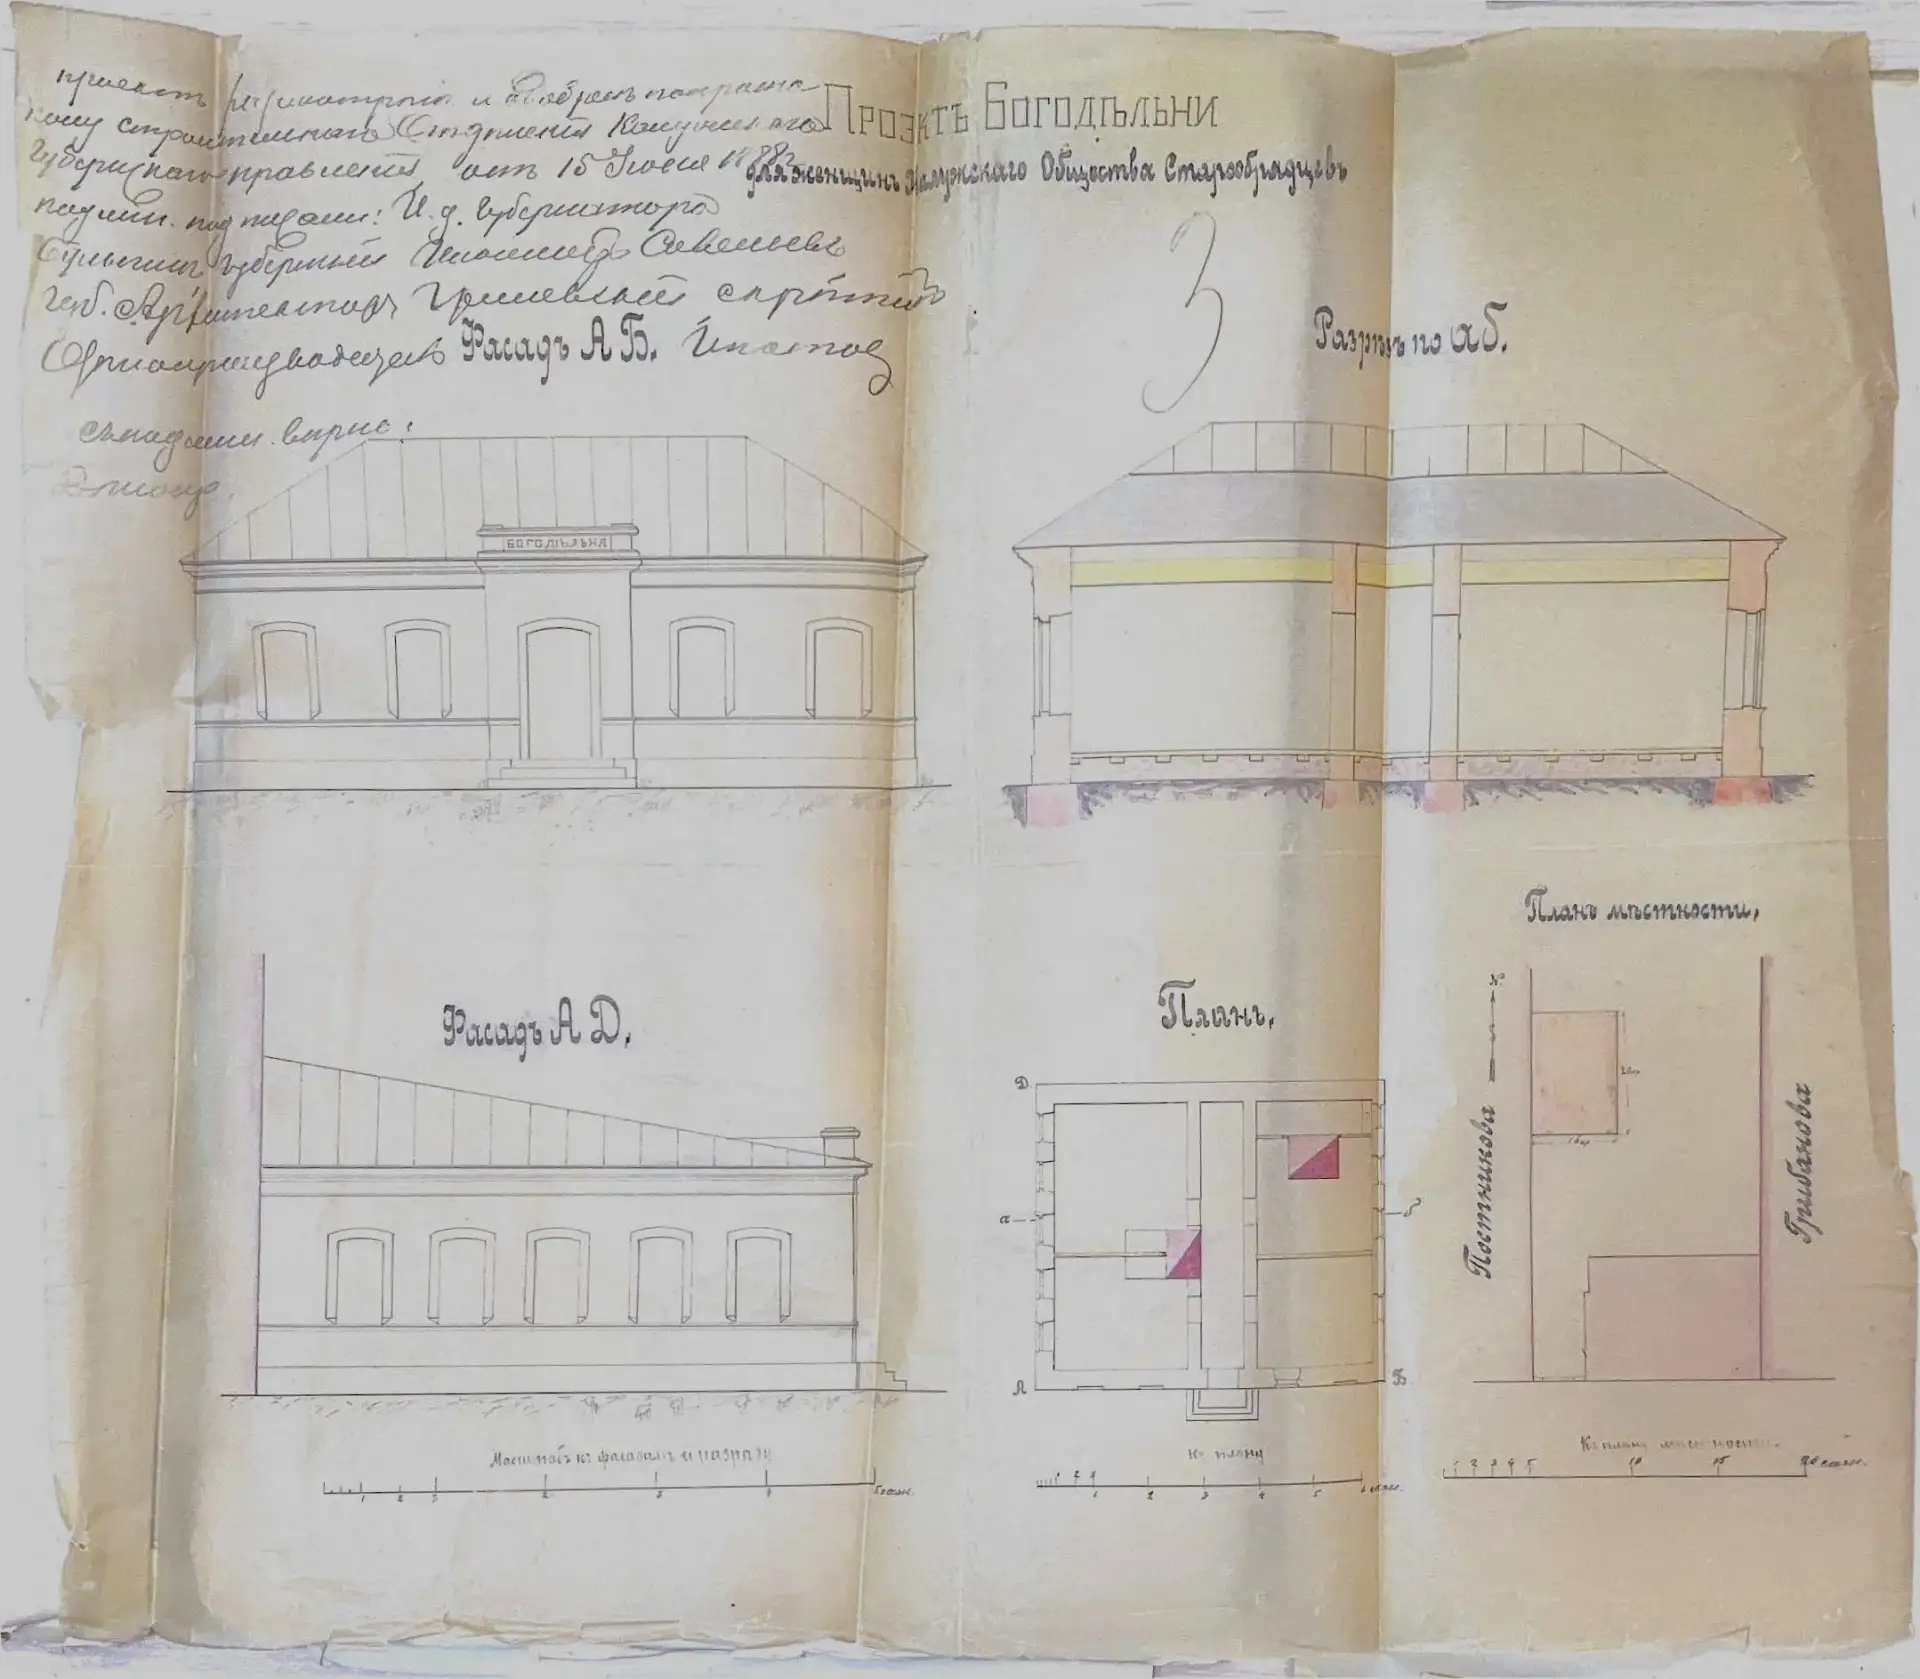 Проэктъ Богодѣльни
для женщинъ Калужскаго Общества Старообрядцевъ
проектъ разсмотренъ и одобренъ
строительнаго Отдѣленія Калужскаго
Губернскаго правленія, отъ 15 Іюля
подлин. подписали: И. д. Губернатора
Губернскій Инженеръ Савельевъ
Губ. Архитекторъ скрѣпилъ
Дѣлопроизводитель
съ подлин. вѣрно:
3
Фасадъ А Б.
Разрѣзъ по а б.
БОГОДѢЛЬНЯ
Фасадъ А Д.
Планъ.
Планъ мѣстности.
Д
а
б
А
Б
Постникова
Грибанова
Масштабъ къ фасадамъ и разрѣзу
1 2 3 2 3 4 5 саж.
Къ плану
1 2 3 4 5 6 саж.
Къ плану мѣстности.
1 2 3 4 5 10 15 20 саж.